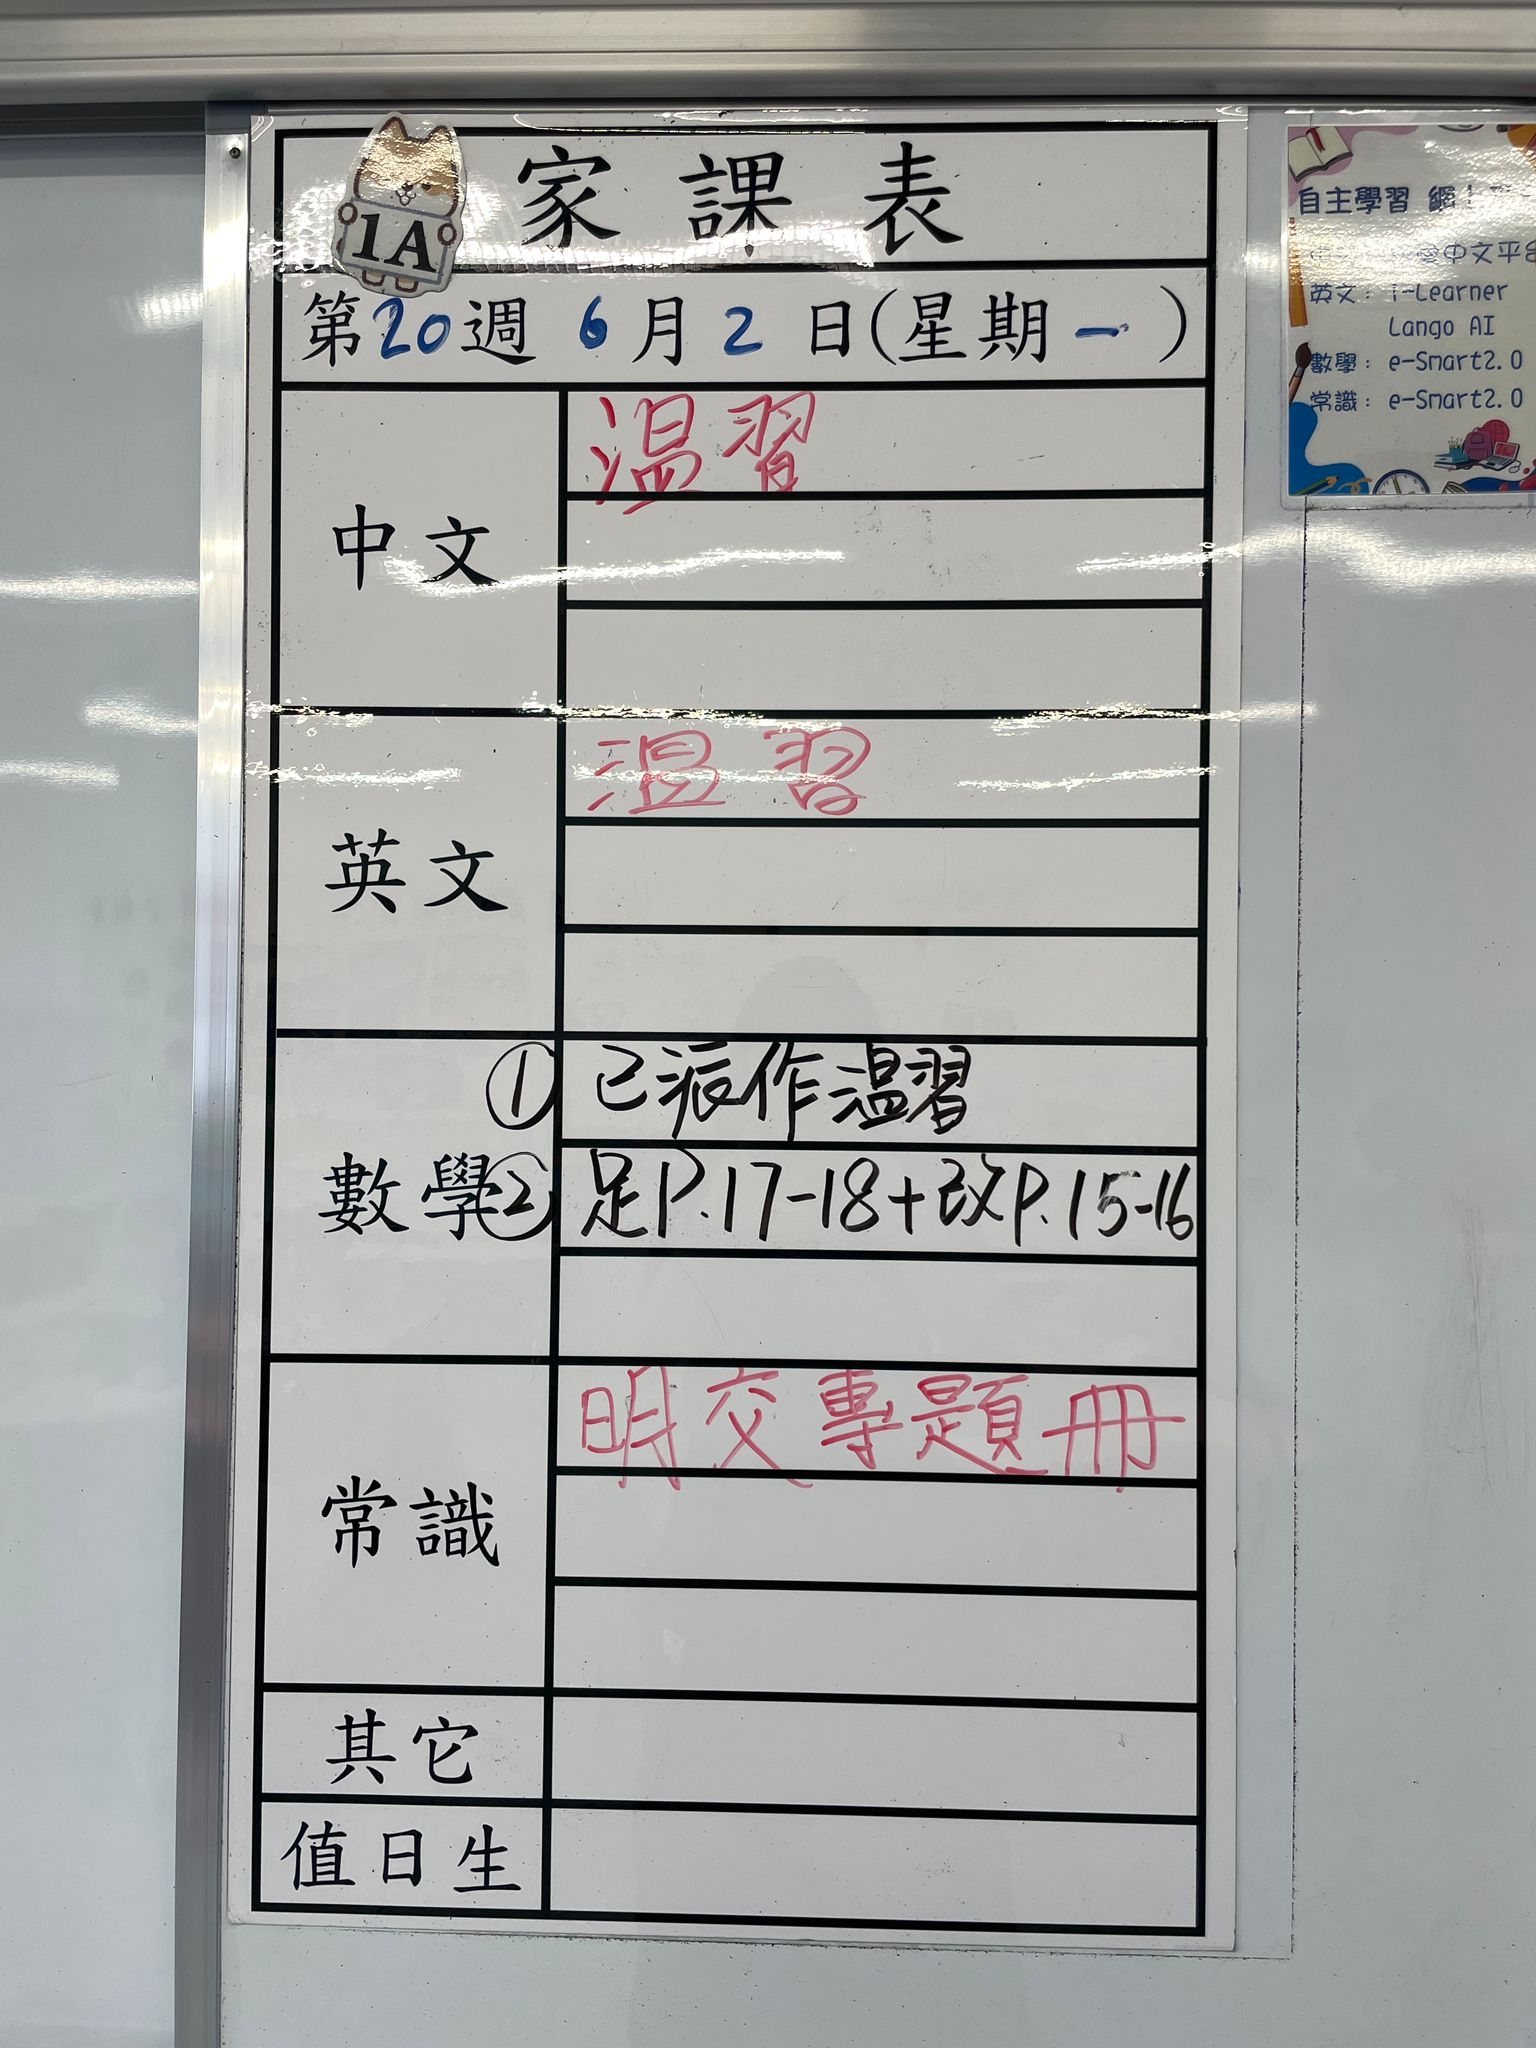 1A
家課表
第20週 6月2日(星期一)
中文
温習
英文
温習
數學
① 已派作温習
② 足P.17-18+改P.15-16
常識
明交專題冊
其它
值日生
自主學習
中文平台
英文: i-Learner
Lango AI
數學: e-Smart2.0
常識: e-Smart2.0